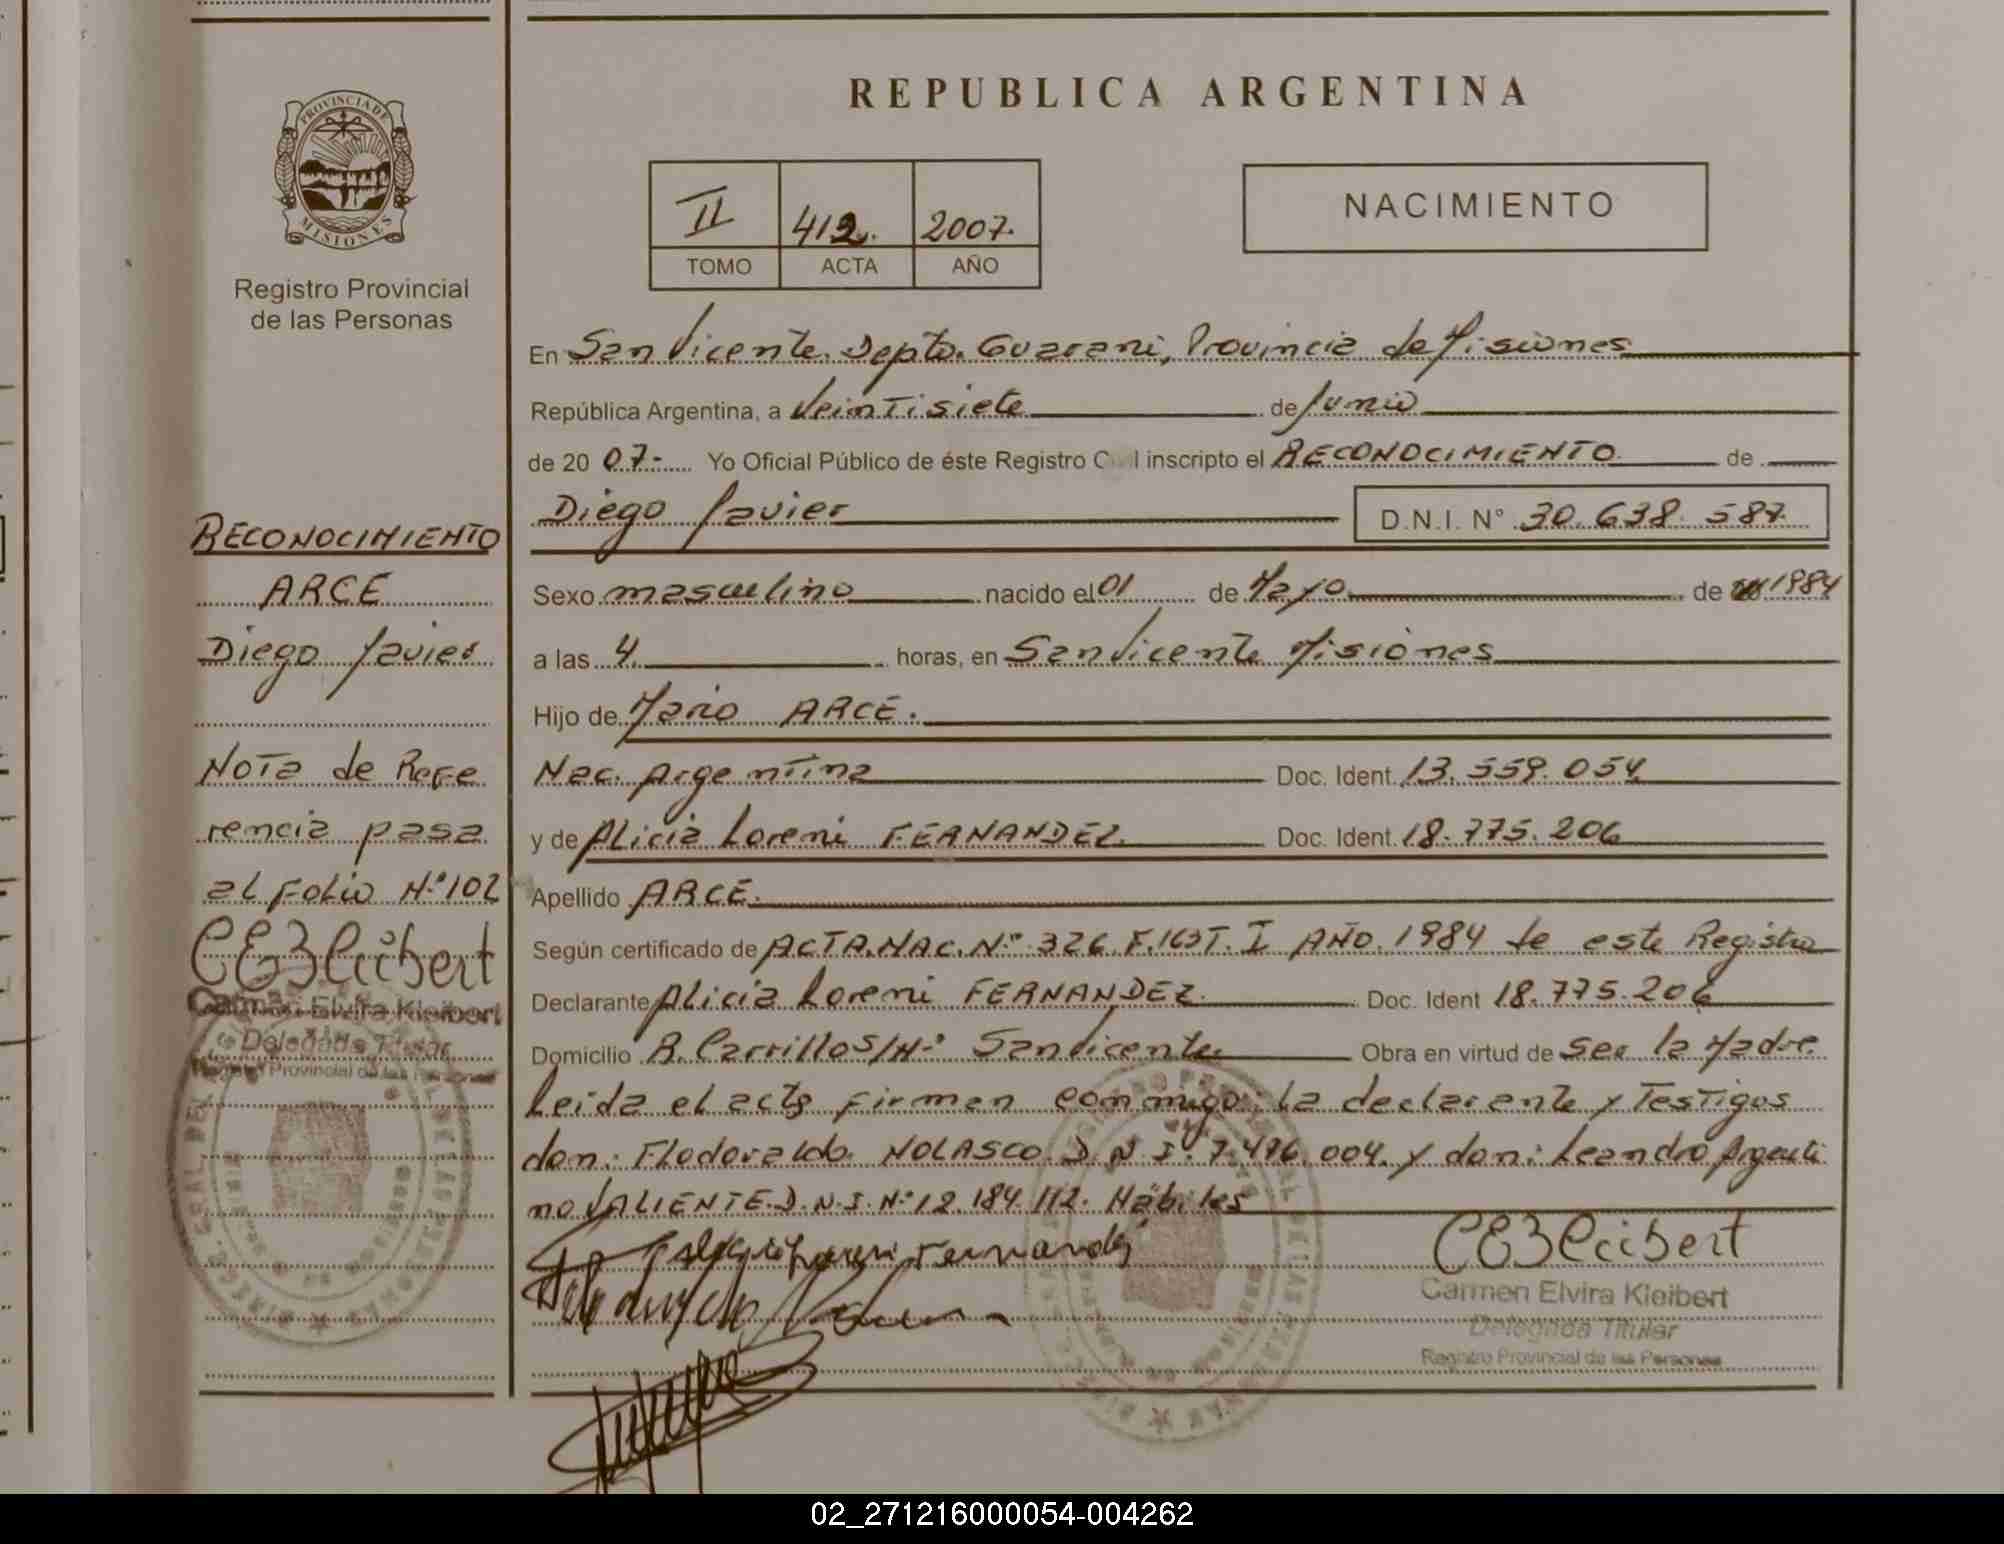 PROVINCIA DE
MISIONES
Registro Provincial
de las Personas
RECONOCIMIENTO
ARCE
Diego Javier
Nota de Refe
rencia pasa
al Folio N.º 102
CEKleibert
Carmen Elvira Kleibert
Delegada Titular
Registro Provincial de las Personas
REPUBLICA ARGENTINA
II 412. 2007.
TOMO ACTA AÑO
NACIMIENTO
En San Vicente. Depto. Guarani, Provincia de Misiones
República Argentina, a Veintisiete de Junio
de 20 07- Yo Oficial Público de éste Registro Civil inscripto el RECONOCIMIENTO de
Diego Javier D.N.I. N° 30.638.587
Sexo masculino nacido el 01 de Mayo de 1984
a las 4. horas, en San Vicente Misiones
Hijo de Mario ARCE.
Nac. Argentina Doc. Ident. 13.559.054
y de Alicia Loreni FERNANDEZ. Doc. Ident. 18.775.206
Apellido ARCE.
Según certificado de ACTA.NAC.N.º 326.F.163T.I AÑO.1984 de este Registro
Declarante Alicia Loreni FERNANDEZ. Doc. Ident 18.775.206
Domicilio R. Carrillo S/N.º San Vicente. Obra en virtud de ser la Madre.
Leida el acta firman conmigo: la declarante y Testigos
don: Flodoraldo NOLASCO D.N.I. 7.496.004. y don: Leandro Argenti
no VALIENTE.D.N.I.N.º 12.184.112. Hábiles
Fernandez
CEKleibert
Carmen Elvira Kleibert
Delegada Titular
Registro Provincial de las Personas
02_271216000054-004262